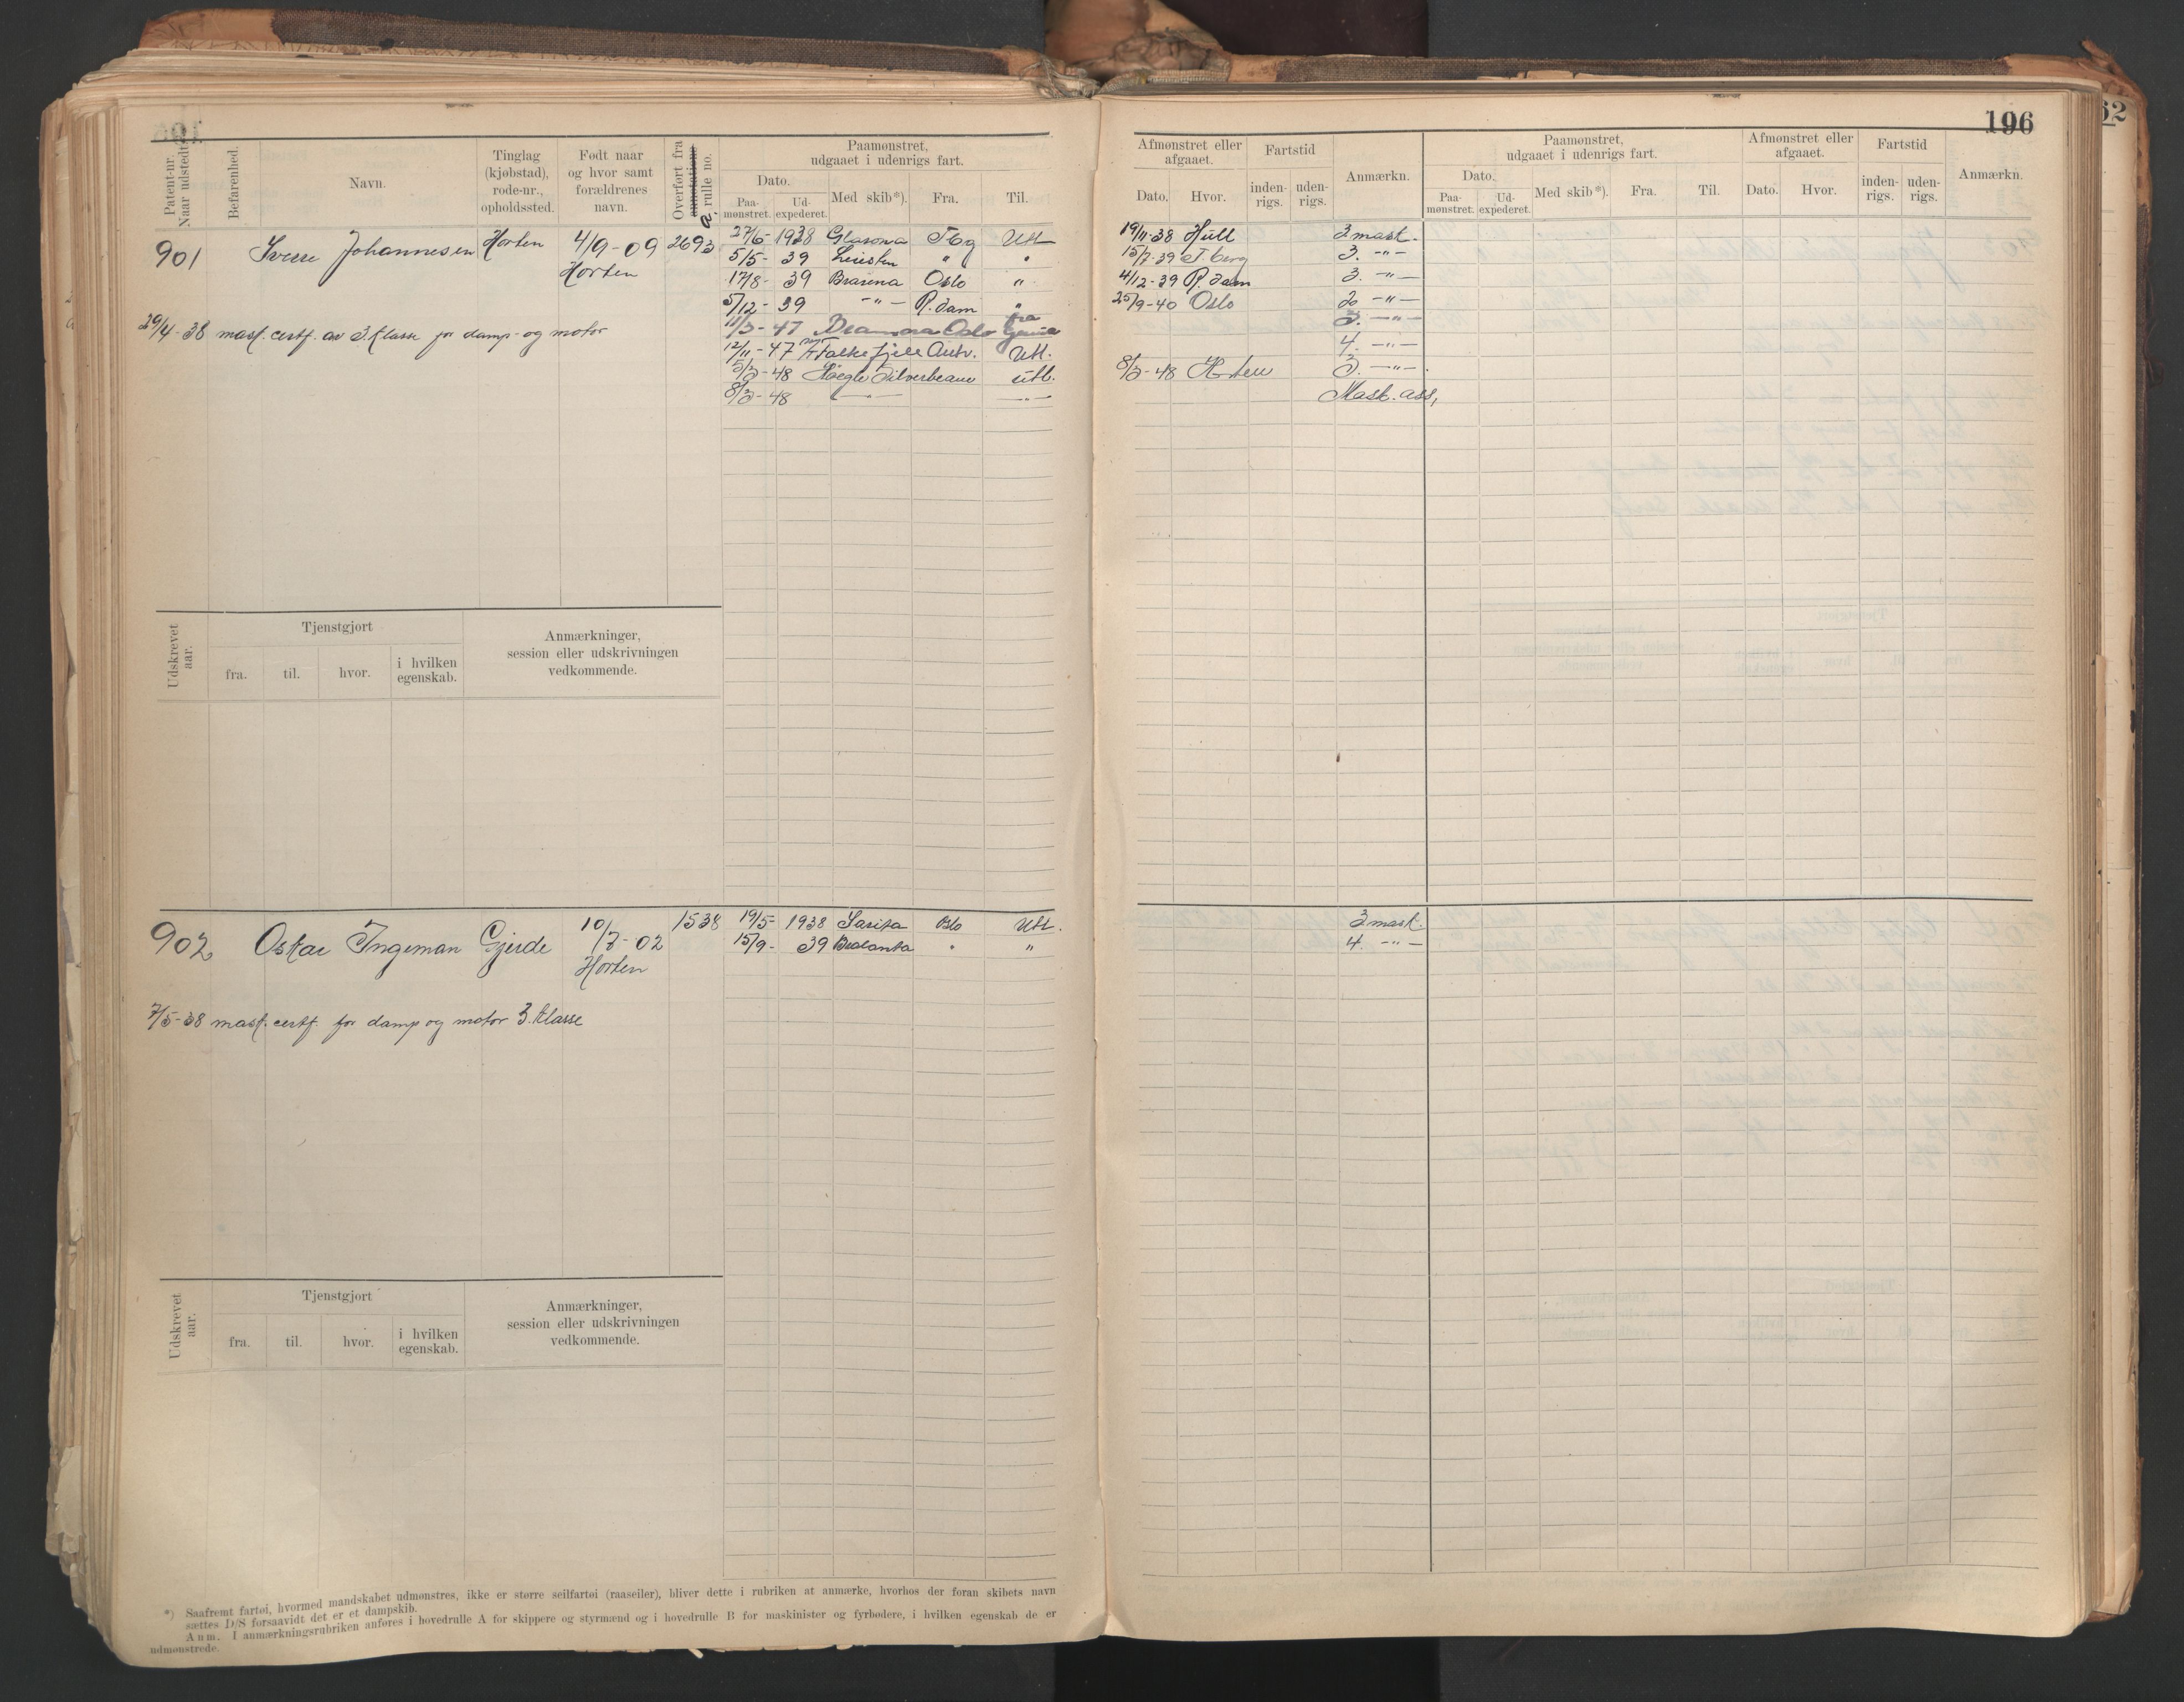 196
62
Patent-nr. Naar udstedt
Befarenhed.
Navn.
Tinglag (kjøbstad), rode-nr., opholdssted.
Født naar og hvor samt forældrenes navn.
Overført fra annotations rulle no.
Paamønstret, udgaaet i udenrigs fart.
Dato.
Paa- mønstret.
Ud- expederet.
Med skib*).
Fra.
Til.
Afmønstret eller afgaaet.
Dato.
Hvor.
Fartstid
inden- rigs.
uden- rigs.
Anmærkn.
Paamønstret, udgaaet i udenrigs fart.
Dato.
Paa- mønstret.
Ud- expederet.
Med skib*).
Fra.
Til.
Afmønstret eller afgaaet.
Dato.
Hvor.
Fartstid
inden- rigs.
uden- rigs.
Anmærkn.
901 Sverre Johannesen Horten 4/9-09 2693
Horten
27/6- 1938 Glarona Tbg Utl 19/11-38 Hull 3 mask.
5/5- 39 " " 15/7-39 T.berg 3. -"-
17/8- 39 Brasena Oslo " 4/12-39 R.dam 3. -"-
5/12- 39 -"- R.dam " 25/9-40 Oslo 2. -"-
11/3-47 Oslo fra 3. -"-
12/11-47 Falkefjell Antv. Utl. 4. -"-
5/3-48 Høegh Silverbeam utl. 8/3-48 Horten 3. -"-
8/3-48 -"- -"- Mask. ass,
29/4-38 mask. certf. av 3. klasse for damp- og motor
Udskrevet aar.
Tjenstgjort
fra.
til.
hvor.
i hvilken egenskab.
Anmærkninger, session eller udskrivningen vedkommende.
902 Oskar Ingeman Gjerde 10/7-02 1538
Horten
19/5- 1938 Sarita Oslo Utl. 3 mask.
15/9- 39 Bralanta " " 4. -"-
7/5-38 mask. certf. for damp og motor 3. klasse
Udskrevet aar.
Tjenstgjort
fra.
til.
hvor.
i hvilken egenskab.
Anmærkninger, session eller udskrivningen vedkommende.
*) Saafremt fartøi, hvormed mandskabet udmønstres, ikke er større seilfartøi (raaseiler), bliver dette i rubriken at anmærke, hvorhos der foran skibets navn
sættes D/S forsaavidt det er et dampskib.
Anm. I anmærkningsrubriken anføres i hovedrulle A for skippere og styrmænd og i hovedrulle B for maskinister og fyrbødere, i hvilken egenskab de er
udmønstrede.